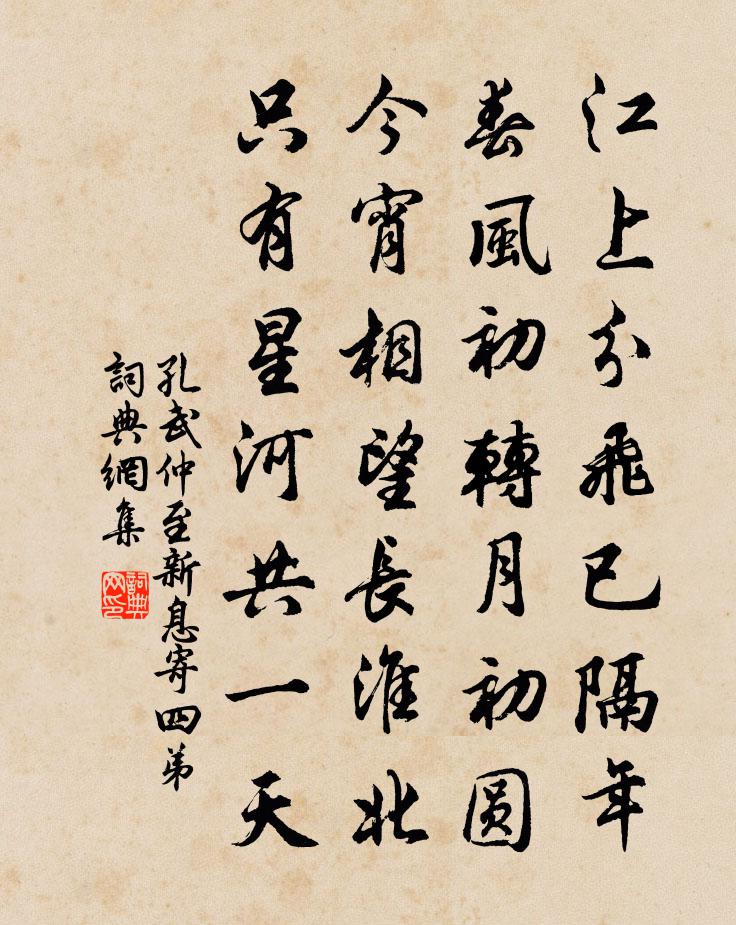 江上分飛已隔年
春風初轉月初圓
今宵相望長淮北
只有星河共一天
孔武仲至新息寄四弟
詞典網集
詞典网印